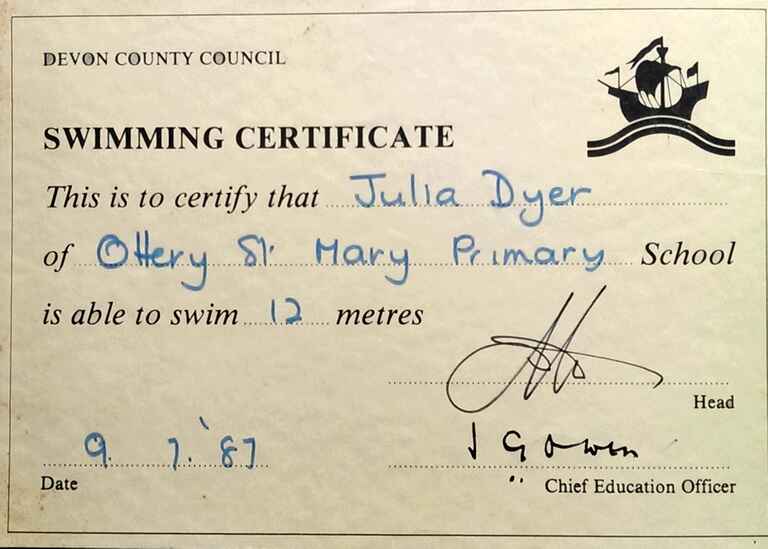 DEVON COUNTY COUNCIL
SWIMMING CERTIFICATE
This is to certify that Julia Dyer
of Ottery St. Mary Primary School
is able to swim 12 metres
Head
9. 7. '87
Date
Chief Education Officer